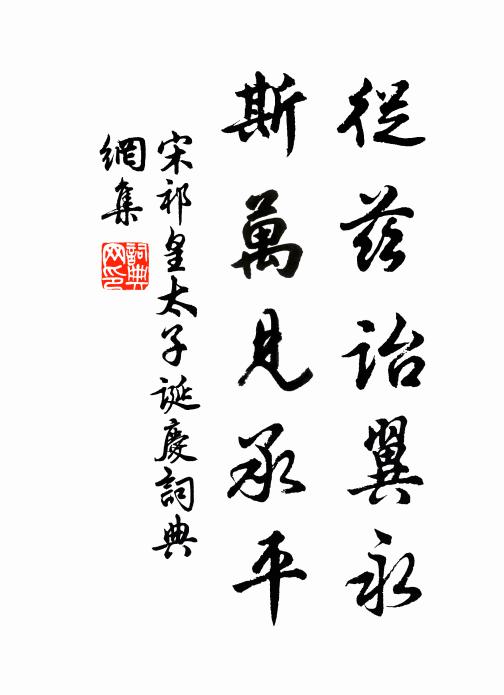 從茲詒翼永
斯萬見承平
宋祁皇太子誕慶詞典
網集
詞典
网印